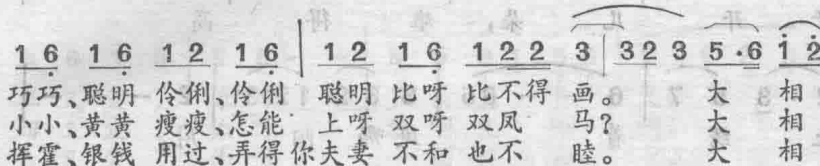 1 6 1 6 1 2 1 6 | 1 2 1 6 1 2 2 3 | 3 2 3 5 · 6 1 2
巧巧、聪明 伶俐、伶俐 聪明 比呀 比不得 画。 大 相
小小、黄黄 瘦瘦、怎能 上呀 双呀 双凤 马? 大 相
挥霍、银钱 用过、弄得 你夫妻 不和 也不 睦。 大 相